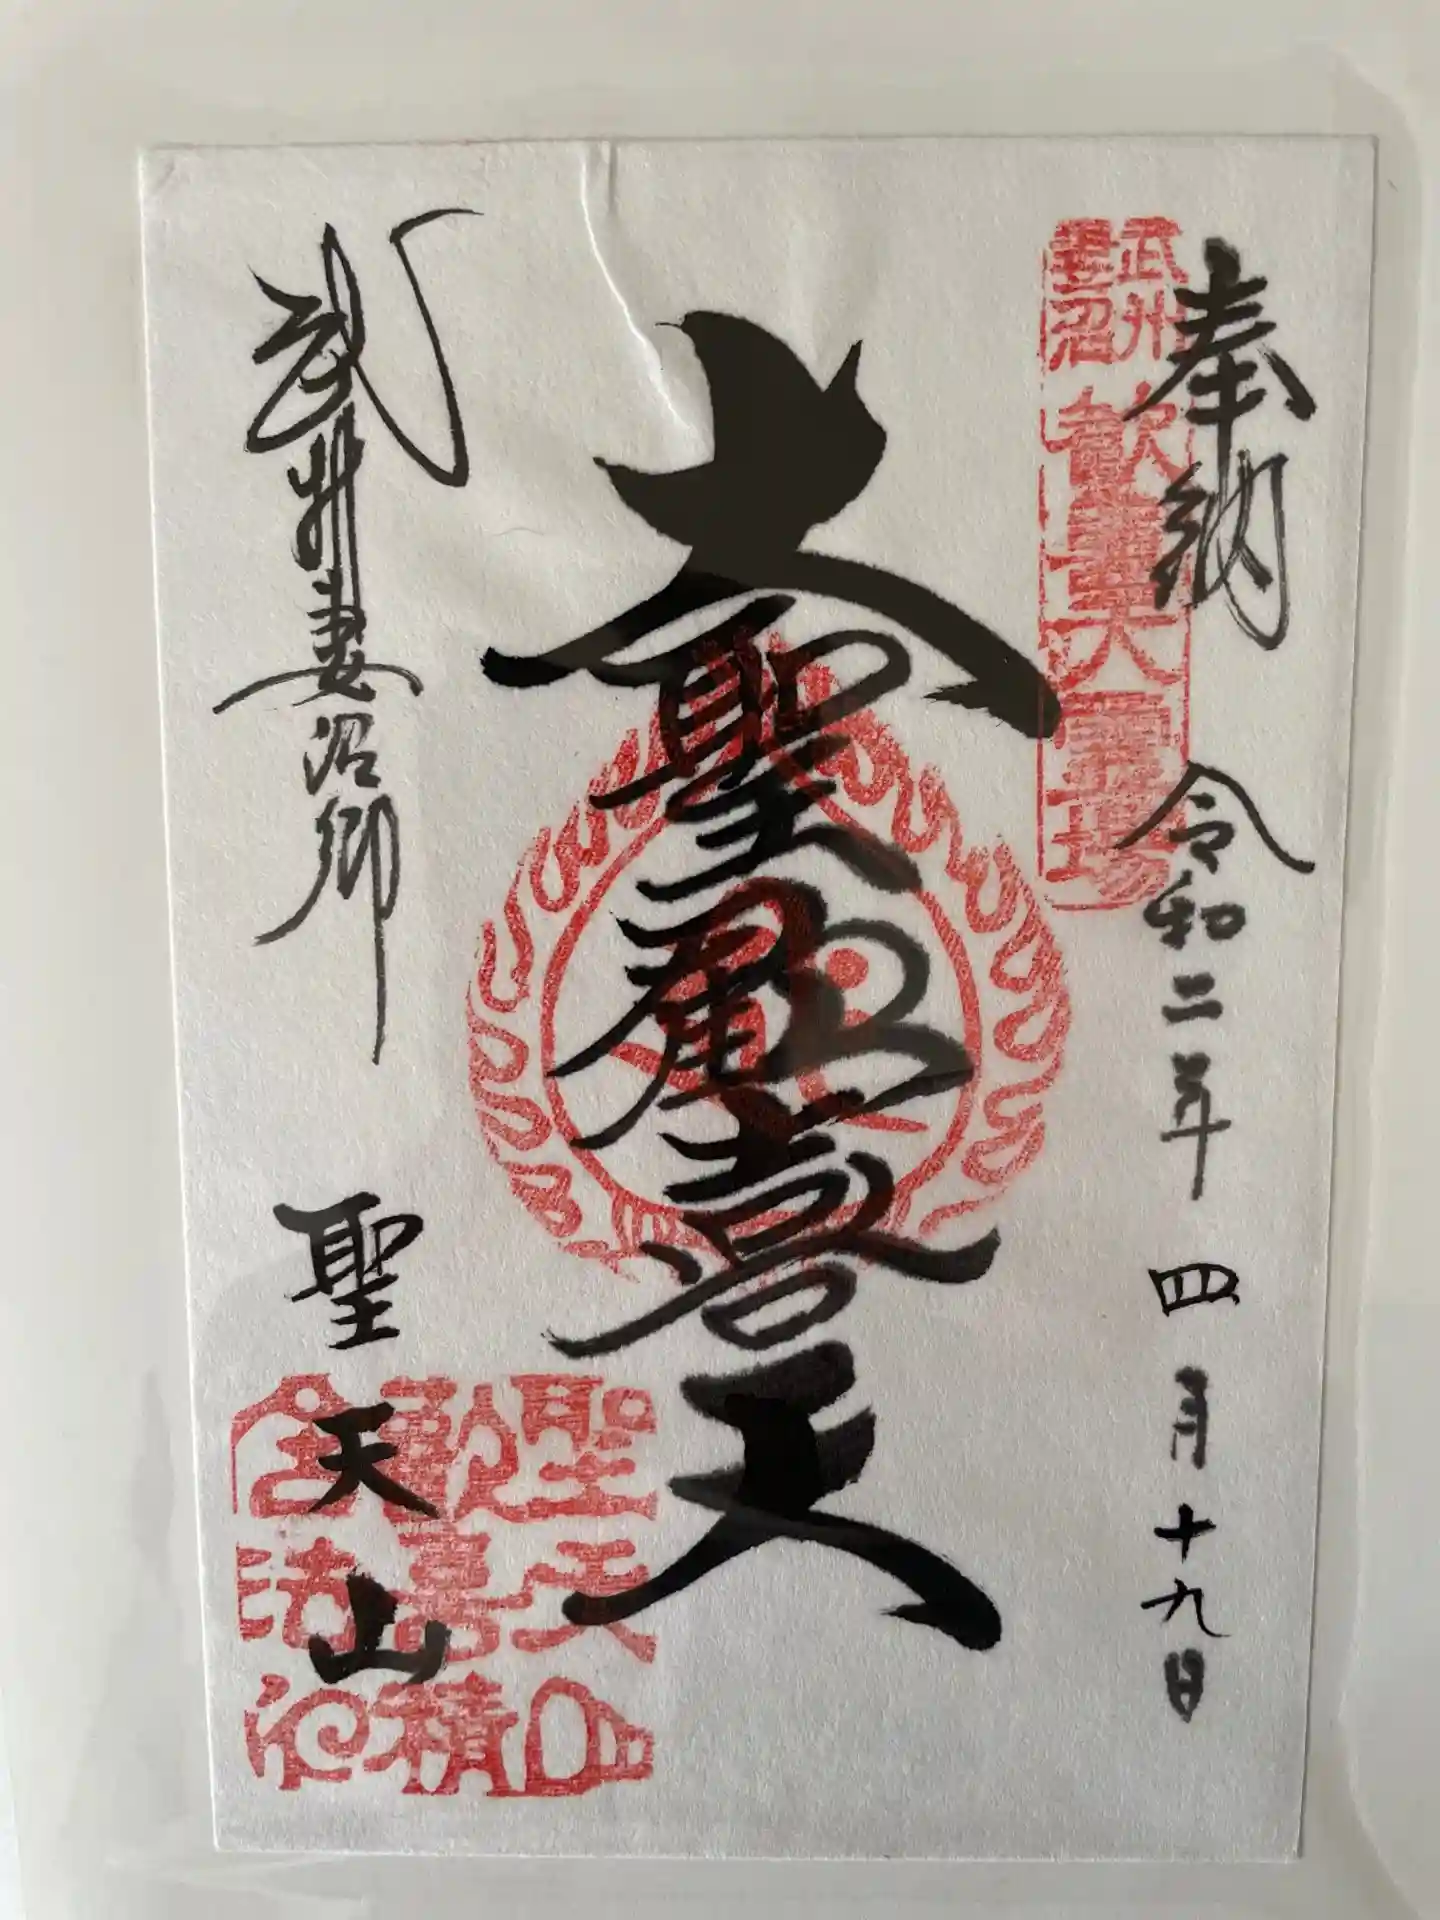 奉納 令和二年 四月十九日
武州
妻沼
歓喜天霊場
大聖歓喜天
武州妻沼郷 聖天山
聖天山
歓喜積